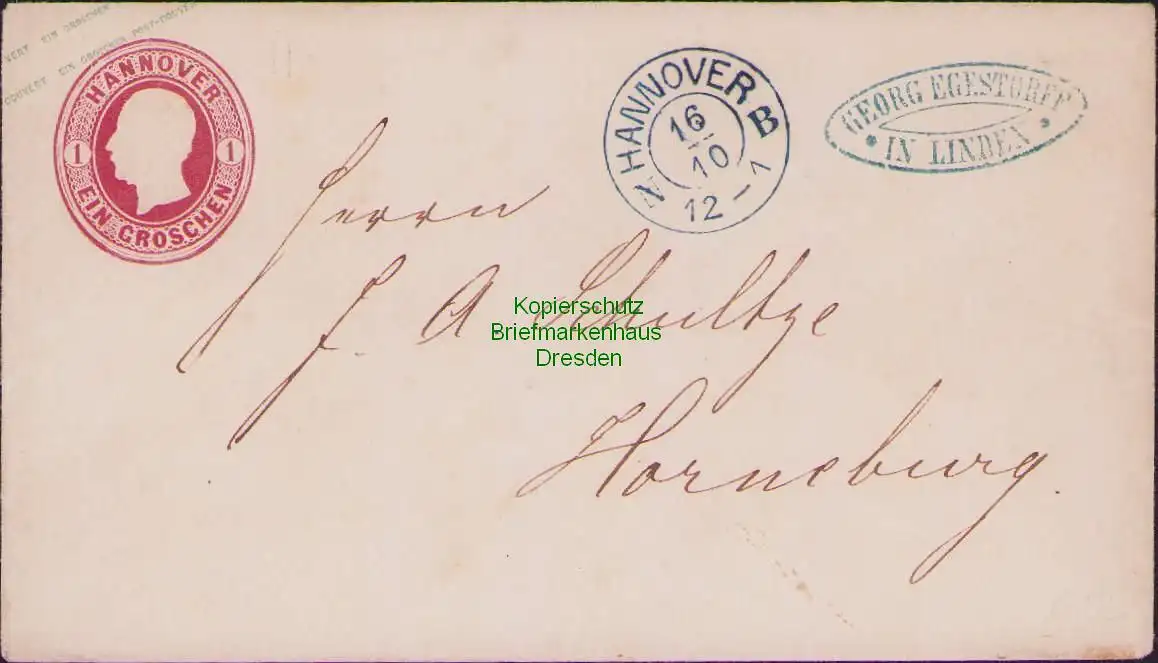 VERT EIN GROSCHEN
COUVERT EIN GROSCHEN POST-COUVERT
HANNOVER
1 1
EIN GROSCHEN
HANNOVER B
16
10
12-1
GEORG EGESTORFF
IN LINDEN
Herrn
F. A. Schultze
Horneburg.
Kopierschutz
Briefmarkenhaus
Dresden